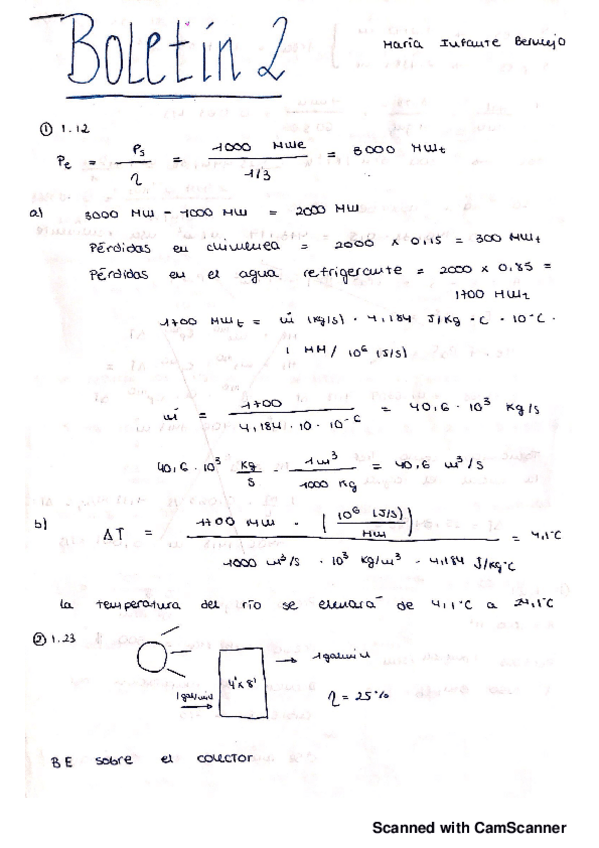 Boletín 2
María Infante Bermejo
① 1.12
Pe = Ps / η = 1000 MWe / 1/3 = 3000 MWt
a) 3000 MW - 1000 MW = 2000 MW
Pérdidas en chimenea = 2000 x 0,15 = 300 MWt
Pérdidas en el agua refrigerante = 2000 x 0,85 =
1700 MWt
1700 MWt = ṁ (kg/s) · 4,184 J/kg·C · 10°C ·
1 MW / 10⁶ (J/s)
ṁ = 1700 / 4,184 · 10 · 10⁻⁶ = 40,6 · 10³ kg/s
40,6 · 10³ kg/s · 1 m³ / 1000 kg = 40,6 m³/s
b) ΔT = 1700 MW · (10⁶ (J/s) / MW) / 1000 m³/s · 10³ kg/m³ · 4,184 J/kg°C = 4,1°C
La temperatura del río se elevará de 4,1°C a 24,1°C
② 1.23
1 gal/min
4' x 8'
1 gal/min
η = 25%
BE sobre el colector
Scanned with CamScanner